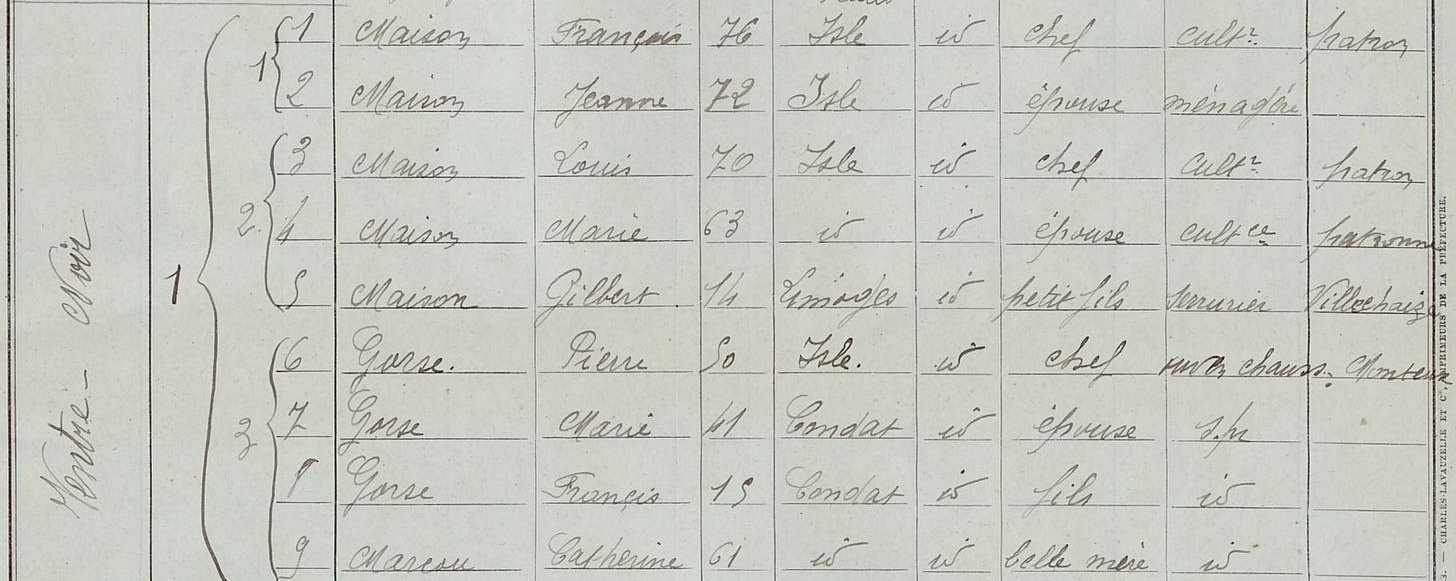 1 1 Maison François 76 Isle id chef cultr. patron
2 Maison Jeanne 72 Isle id épouse ménagère
3 Maison Louis 70 Isle id chef cultr. patron
2 4 Maison Marie 63 id id épouse cultce patronne
1 5 Maison Gilbert. 14 Limoges id petit fils serrurier Villechaize
6 Gorse. Pierre 50 Isle. id chef chauss.
3 7 Gorse Marie 41 Condat id épouse s.pr
8 Gorse Françis 15 Condat id fils id
9 Marcou Catherine 61 id id belle mère id
Ventre-Noir
CHARLES-LAVAUZELLE ET Cie, IMPRIMEURS DE LA PRÉFECTURE.